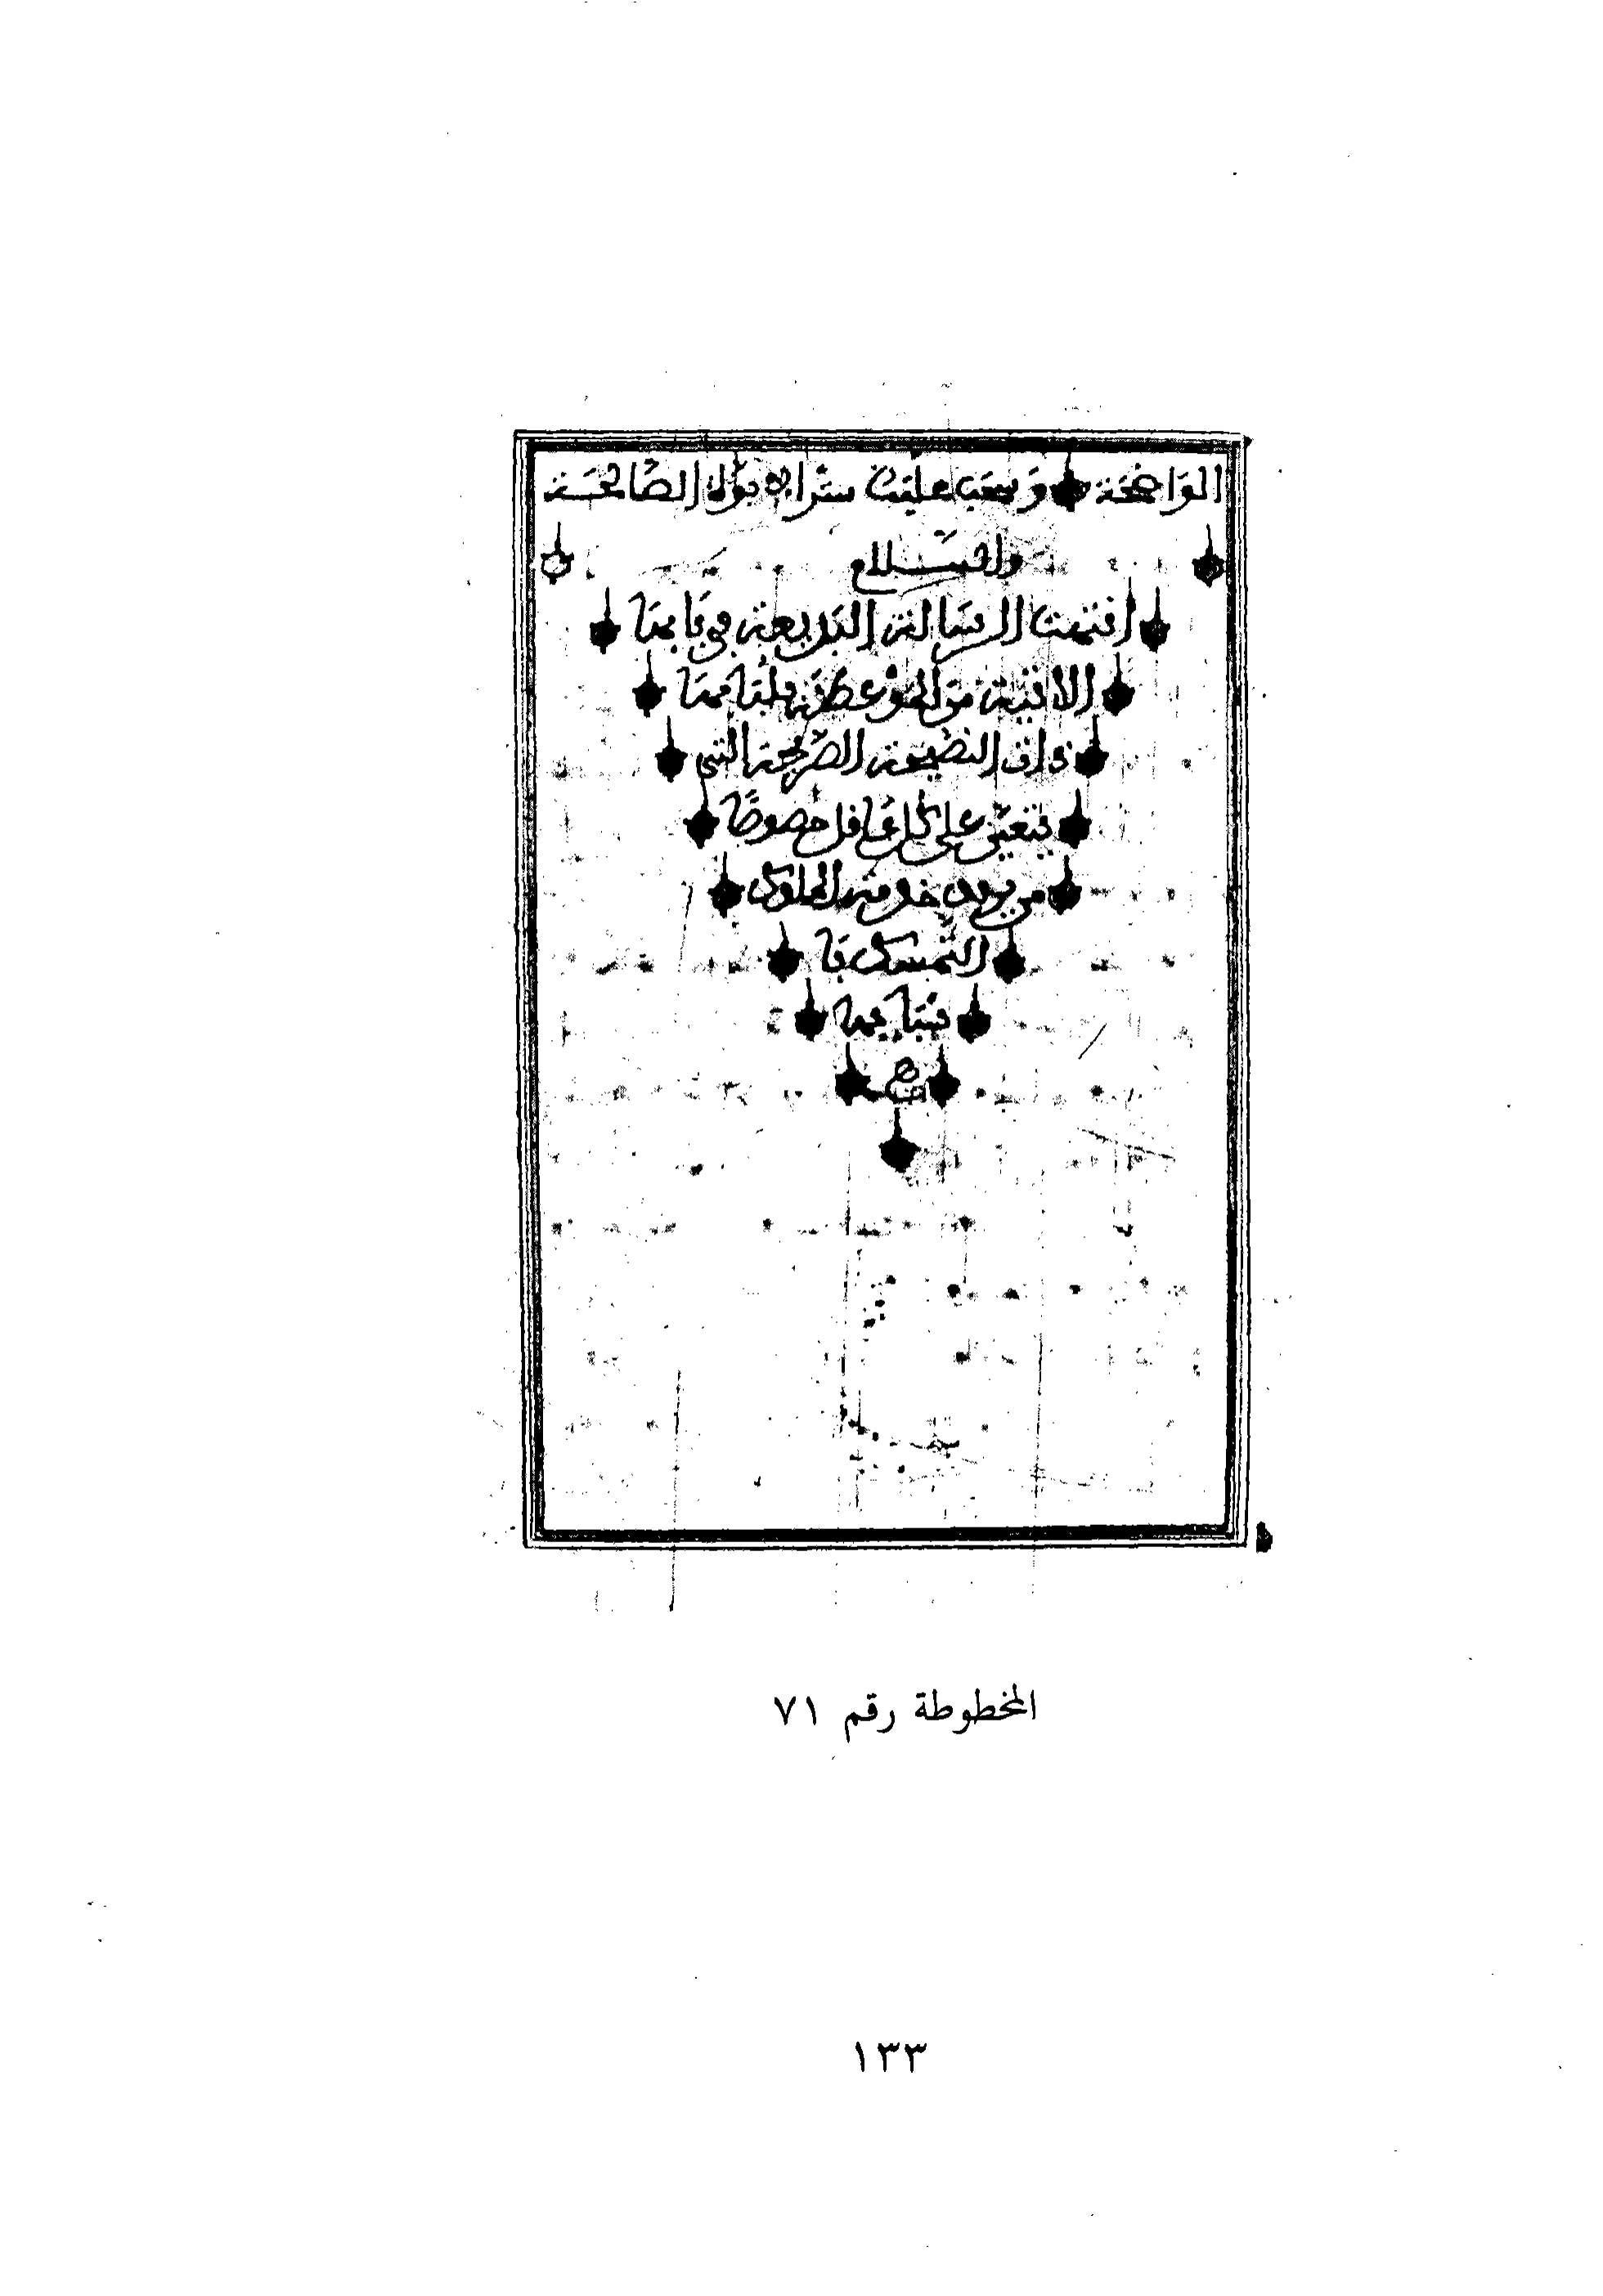 الوَاضحَة وَسحَب عليك ستر ابوَّة الصَّالحَة
والسَّلام
انتهت الرسَالة البَديعة في بَابهَا
الاتية من الموْعظة بلبَابهَا
ذات النصيحة الصَّريحة التي
يتعيّن على كل عَاقل خصوصًا
من يريد خدمة الملوك
التمسّك بَا
سْبَابهَا
المخطوطة رقم ٧١
١٣٣